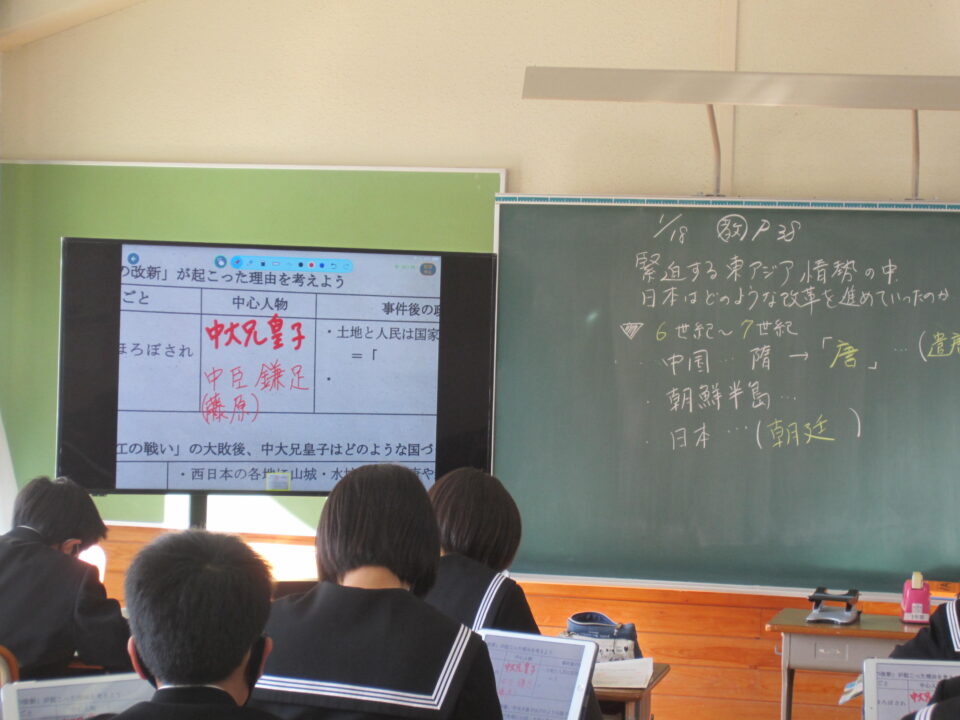 の改新」が起こった理由を考えよう
ごと
中心人物
事件後の
ほろぼされ
中大兄皇子
中臣鎌足
(藤原)
・土地と人民は国家
＝「
・
江の戦い」の大敗後、中大兄皇子はどのような国づ
・西日本の各地に山城・水
1/18 教 P38
緊迫する東アジア情勢の中、
日本はどのような改革を進めていったのか
6世紀〜7世紀
・中国…隋→「唐」…(遣唐
・朝鮮半島…
・日本…(朝廷)
中大兄皇子